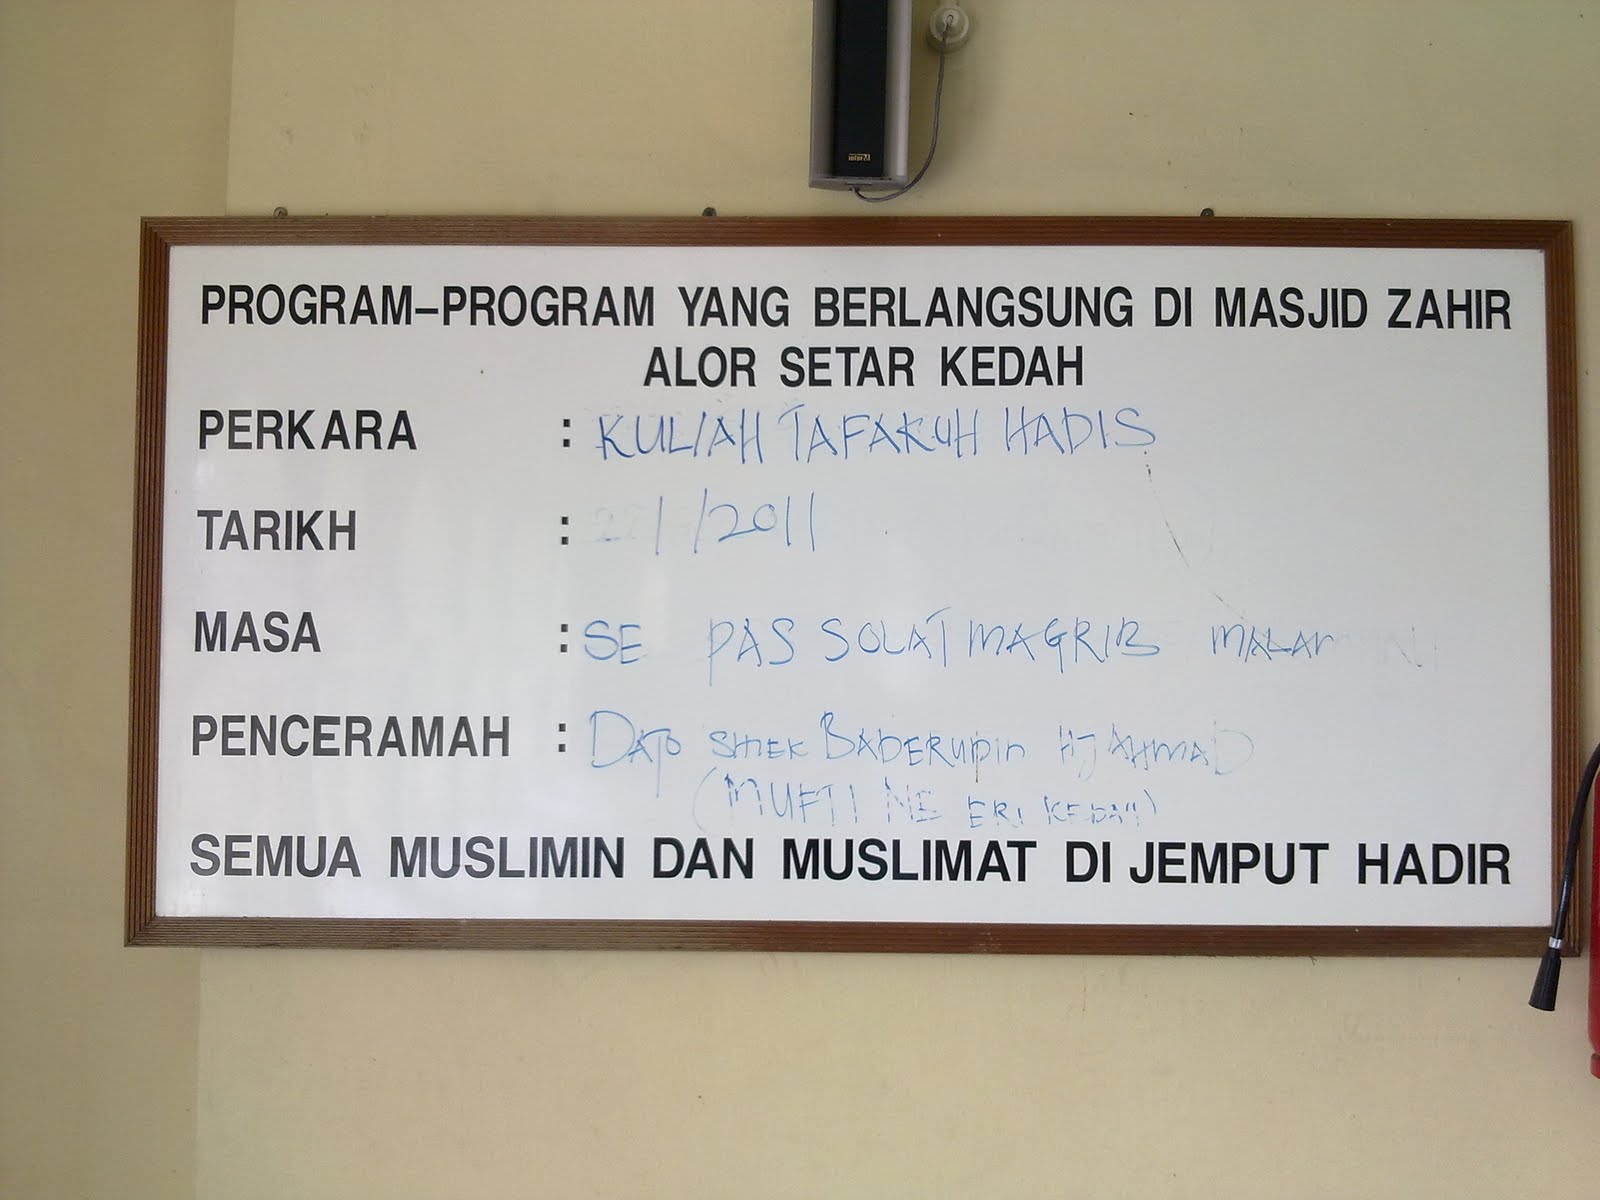 PROGRAM-PROGRAM YANG BERLANGSUNG DI MASJID ZAHIR
ALOR SETAR KEDAH
PERKARA : KULIAH TAFAKUH HADIS
TARIKH : /2011
MASA : SE PAS SOLAT MAGRIB
PENCERAMAH : DATO SHIEK BADERUDIN HJ AHMAD
(MUFTI NE ERI KEDAH)
SEMUA MUSLIMIN DAN MUSLIMAT DI JEMPUT HADIR